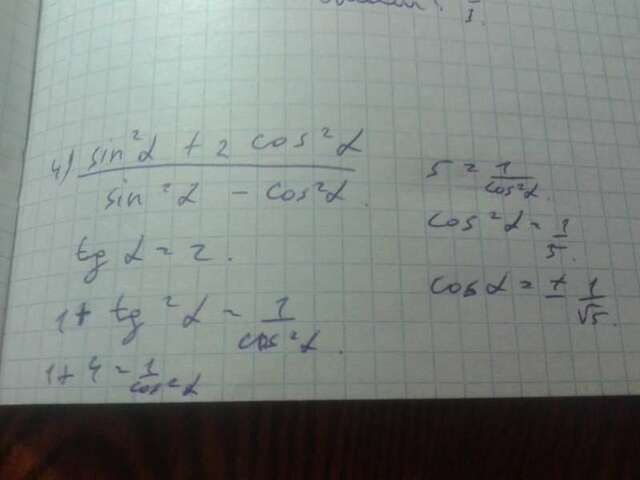 4) sin²α + 2 cos²α / sin²α - cos²α.
tg α = 2.
1 + tg²α = 1/cos²α.
1 + 4 = 1/cos²α
5 = 1/cos²α.
cos²α = 1/5.
cos α = ± 1/√5.